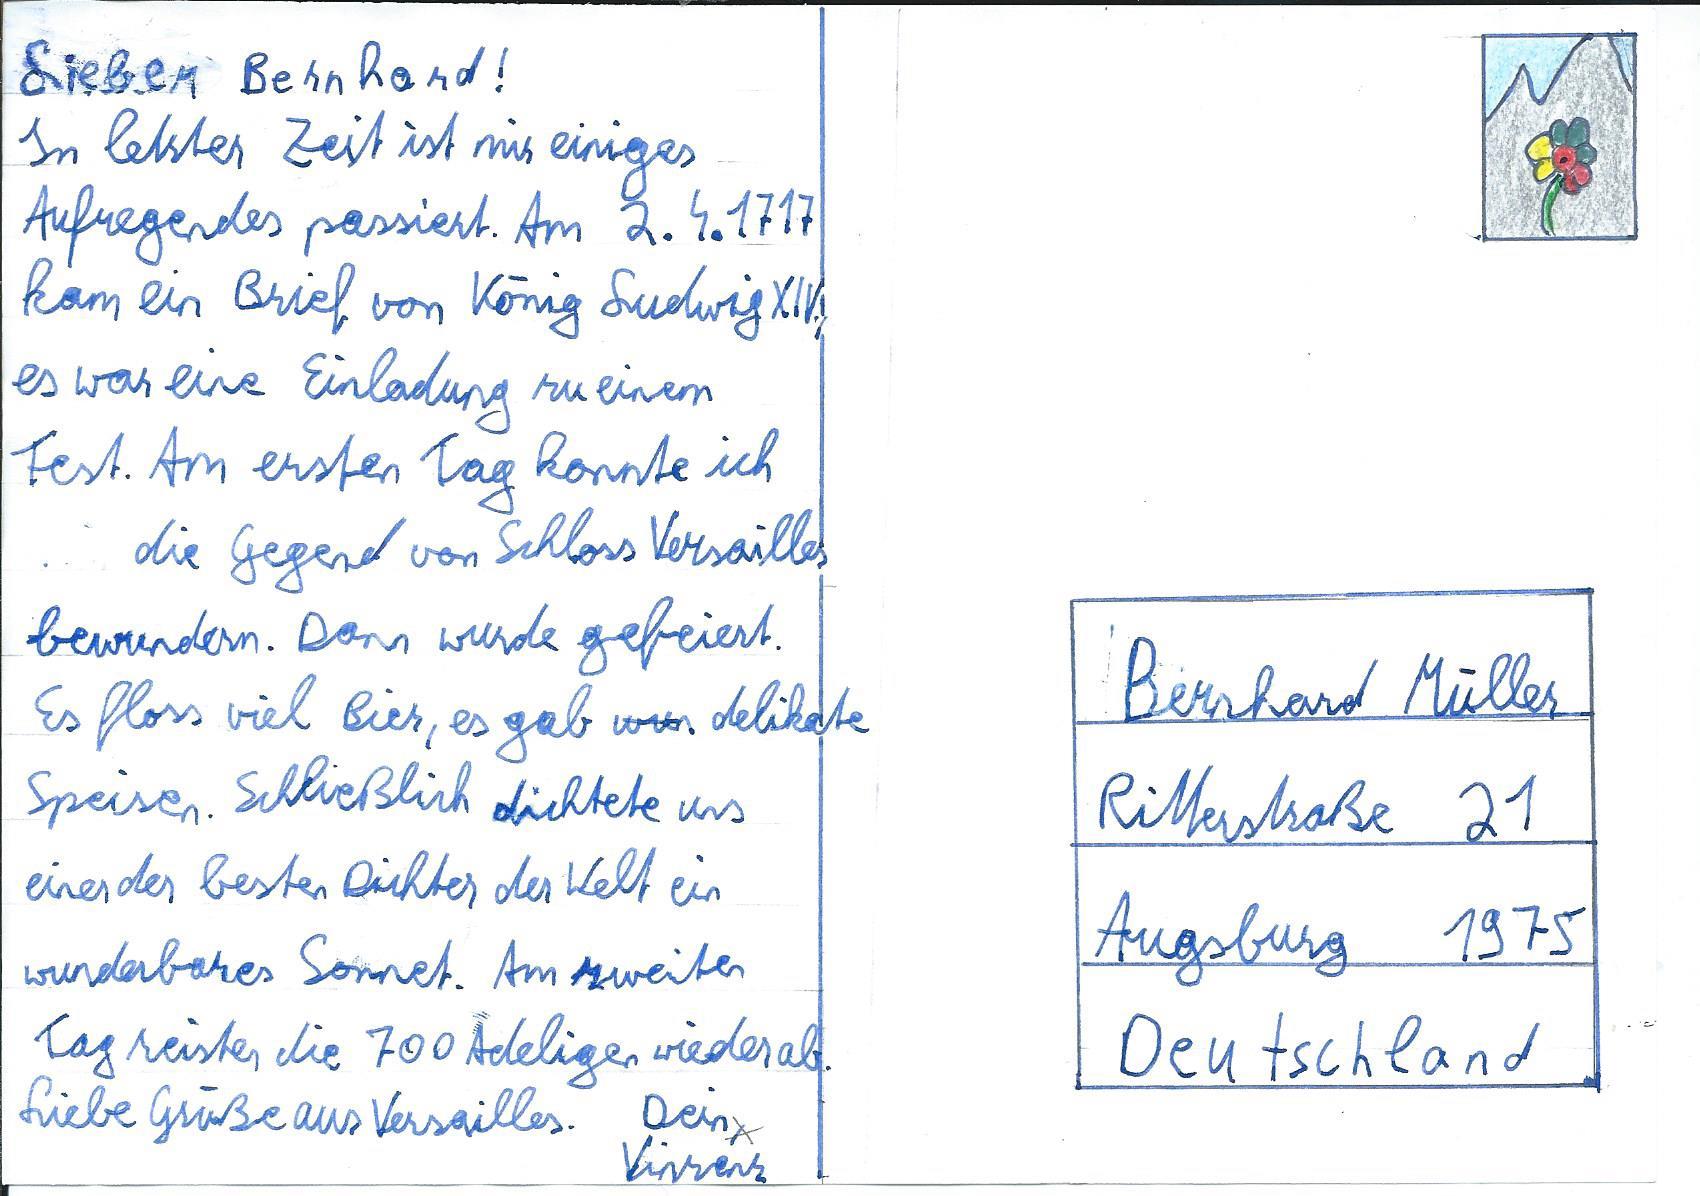 Lieber Bernhard!
In letzter Zeit ist mir einiges
Aufregendes passiert. Am 2.4.1717
kam ein Brief von König Ludwig XIV.,
es war eine Einladung zu einem
Fest. Am ersten Tag konnte ich
die Gegend von Schloss Versailles
bewundern. Dann wurde gefeiert.
Es floss viel Bier, es gab delikate
Speisen. Schließlich dichtete uns
einer der besten Dichter der Welt ein
wunderbares Sonnet. Am zweiten
Tag reisten die 700 Adeligen wieder ab.
Liebe Grüße aus Versailles. Dein
Vinzenz
Bernhard Müller
Ritterstraße 21
Augsburg 1975
Deutschland